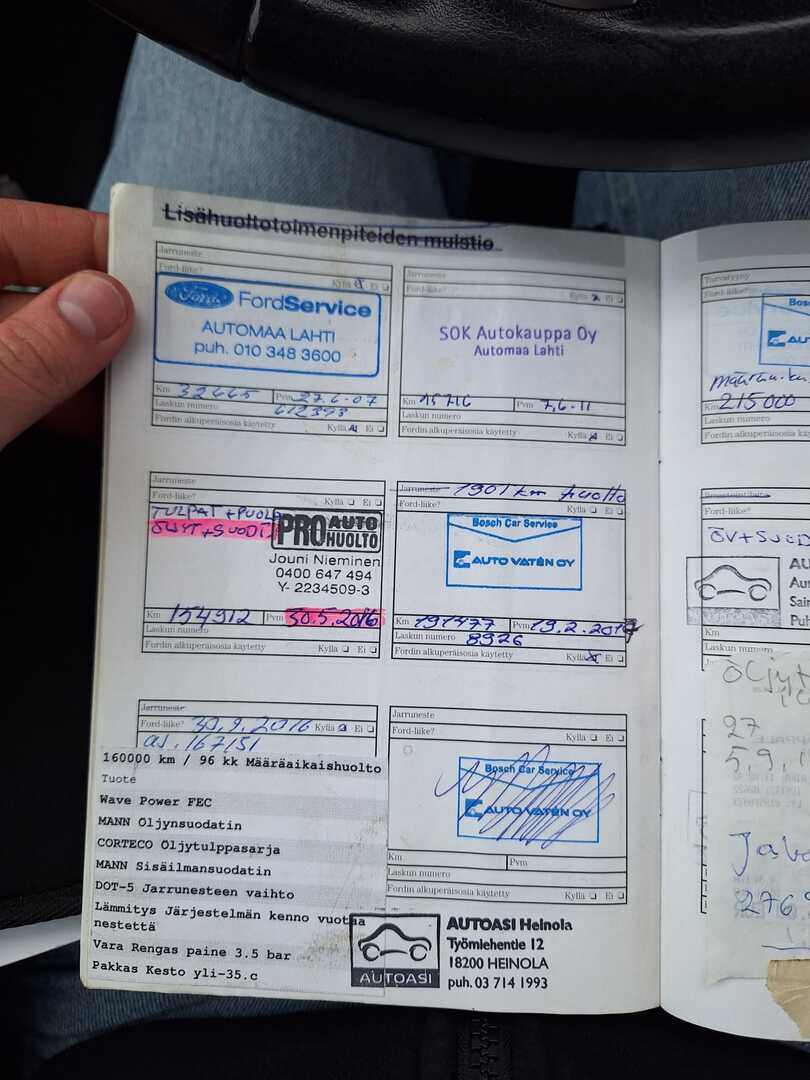 Lisähuoltotoimenpiteiden muistio
Jarruneste
Ford-liike? Kyllä Ei
Ford FordService
AUTOMAA LAHTI
puh. 010 348 3600
Km 32665 Pvm 27.6-07
Laskun numero 612393
Fordin alkuperäisosia käytetty Kyllä Ei
Jarruneste
Ford-liike? Kyllä Ei
SOK Autokauppa Oy
Automaa Lahti
Km Pvm 7.6-11
Laskun numero
Fordin alkuperäisosia käytetty Kyllä Ei
Jarruneste
Ford-liike? Kyllä Ei
TULPAT + PUOLA
ÖLJYT + SUODA
PRO AUTO
HUOLTO
Jouni Nieminen
0400 647 494
Y- 2234509-3
Km 154912 Pvm 30.5.2016
Laskun numero
Fordin alkuperäisosia käytetty Kyllä Ei
Jarruneste 1901 km huolto
Ford-liike?
Bosch Car Service
AUTO VATÉN OY
Km 191477 Pvm 19.2.2019
Laskun numero 8926
Fordin alkuperäisosia käytetty Kyllä Ei
Jarruneste
Ford-liike? 30.9.2016 Kyllä Ei
aj. 167151
160000 km / 96 kk Määräaikaishuolto
Tuote
Wave Power FEC
MANN Öljynsuodatin
CORTECO Öljytulppasarja
MANN Sisäilmansuodatin
DOT-5 Jarrunesteen vaihto
Lämmitys Järjestelmän kenno vuotaa
nestettä
Vara Rengas paine 3.5 bar
Pakkas Kesto yli-35.c
Jarruneste
Ford-liike?
Bosch Car Service
AUTO VATÉN OY
Km Pvm
Laskun numero
Fordin alkuperäisosia käytetty Kyllä Ei
AUTOASI
AUTOASI Heinola
Työmiehentie 12
18200 HEINOLA
puh. 03 714 1993
Ford-liike?
Bosch
AUT
Km 215000
Laskun numero
Fordin alkuperäisosia
Ford-liike?
ÖV+SUOD
AU
Km
Laskun numero
27
5,9,1